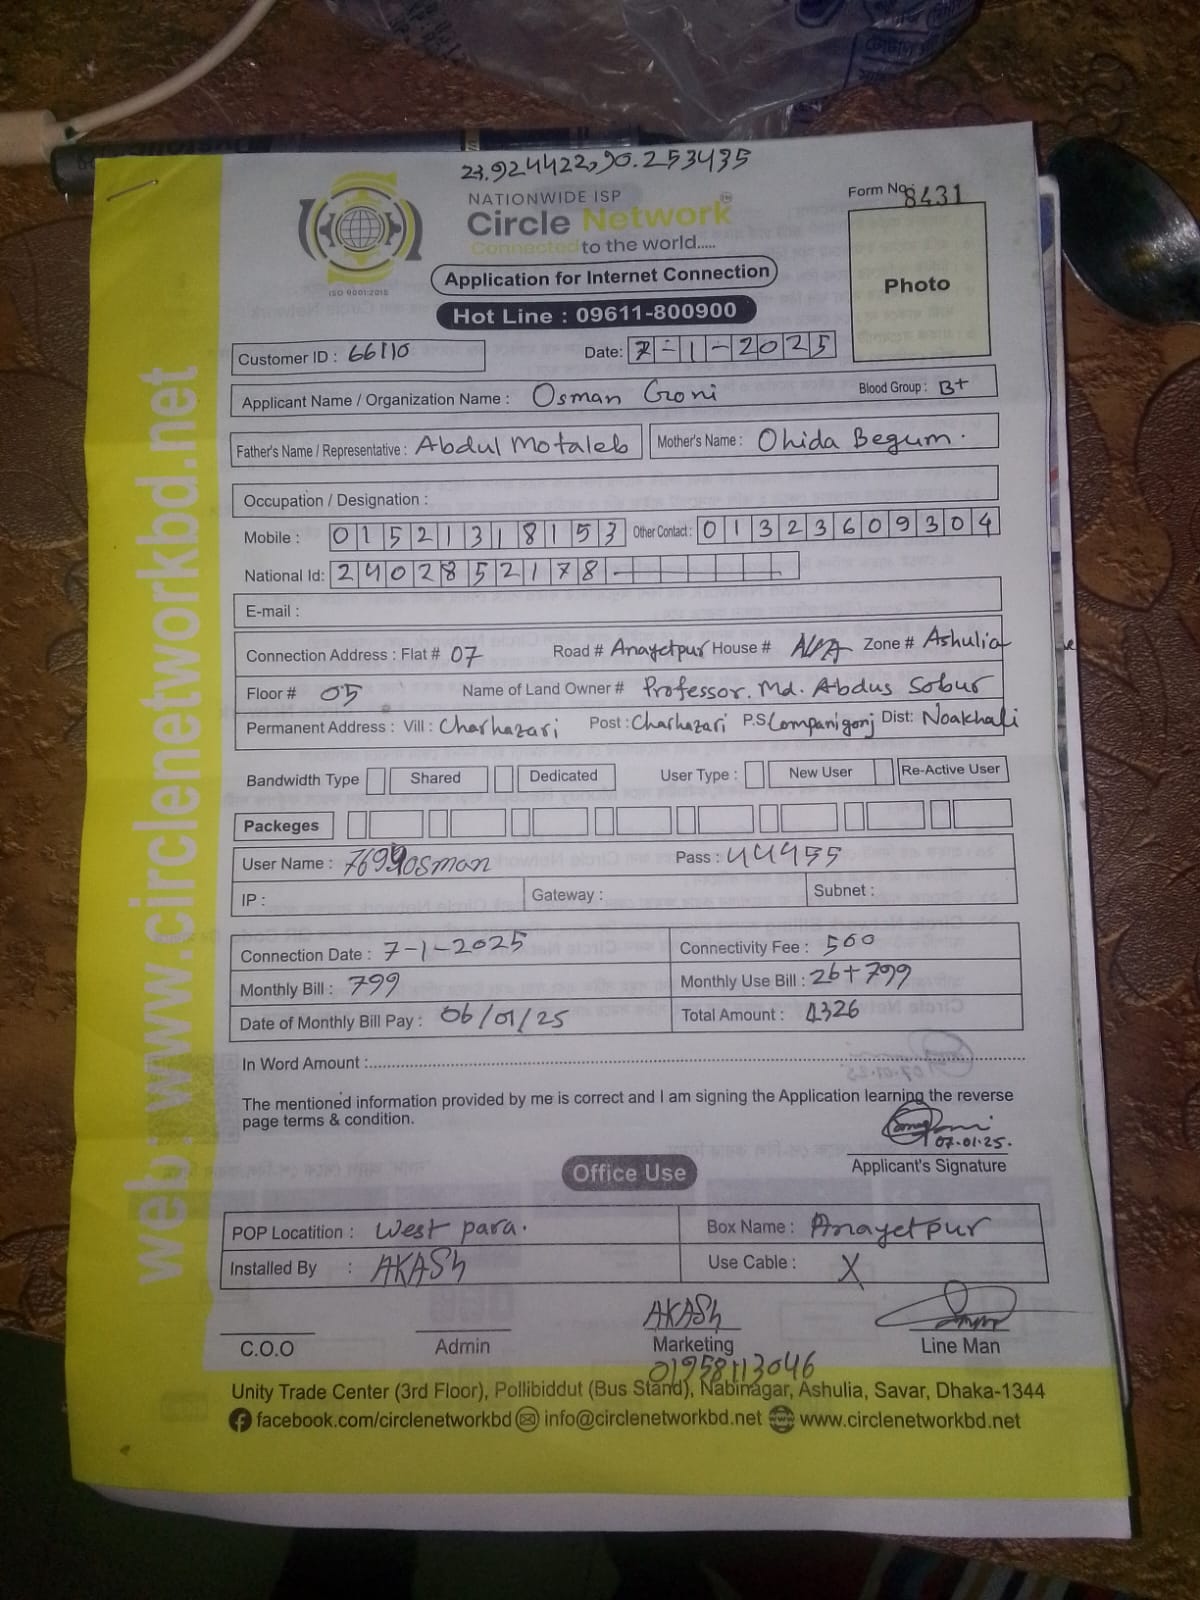 23.924422,90.253435
NATIONWIDE ISP
Circle Network
Connected to the world.....
ISO 9001:2015
Form No. 8431
Photo
Application for Internet Connection
Hot Line : 09611-800900
Customer ID : 66110
Date: 7-1-2025
Applicant Name / Organization Name : Osman Goni Blood Group : B+
Father's Name / Representative : Abdul Motaleb Mother's Name : Ohida Begum.
Occupation / Designation :
Mobile : 01521318153 Other Contact : 01323609304
National Id: 2402852178
E-mail :
Connection Address : Flat # 07 Road # Anayetpur House # Zone # Ashulia
Floor # 05 Name of Land Owner # Professor. Md. Abdus Sobur
Permanent Address : Vill : Charhazari Post : Charhazari P.S Companigonj Dist: Noakhali
Bandwidth Type Shared Dedicated User Type : New User Re-Active User
Packeges
User Name : Pass : 44455
IP : Gateway : Subnet :
Connection Date : 7-1-2025 Connectivity Fee : 500
Monthly Bill : 799 Monthly Use Bill : 26+799
Date of Monthly Bill Pay : 06/01/25 Total Amount : 1326
In Word Amount :
The mentioned information provided by me is correct and I am signing the Application learning the reverse
page terms & condition.
07.01.25.
Applicant's Signature
Office Use
POP Locatition : West para. Box Name : Anayetpur
Installed By : AKASh Use Cable : X
AKASh
C.O.O Admin Marketing Line Man
01958113046
Unity Trade Center (3rd Floor), Pollibiddut (Bus Stand), Nabinagar, Ashulia, Savar, Dhaka-1344
facebook.com/circlenetworkbd info@circlenetworkbd.net www.circlenetworkbd.net
web : www.circlenetworkbd.net